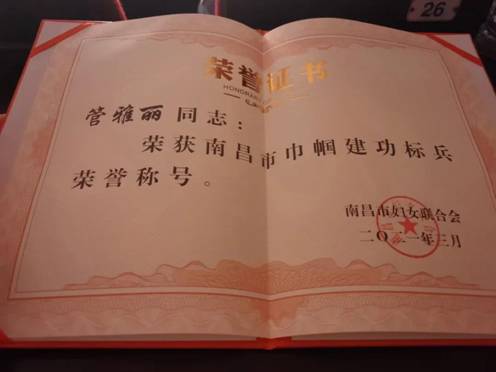 26
荣誉证书
管雅丽同志：
荣获南昌市巾帼建功标兵
荣誉称号。
南昌市妇女联合会
二〇二一年三月